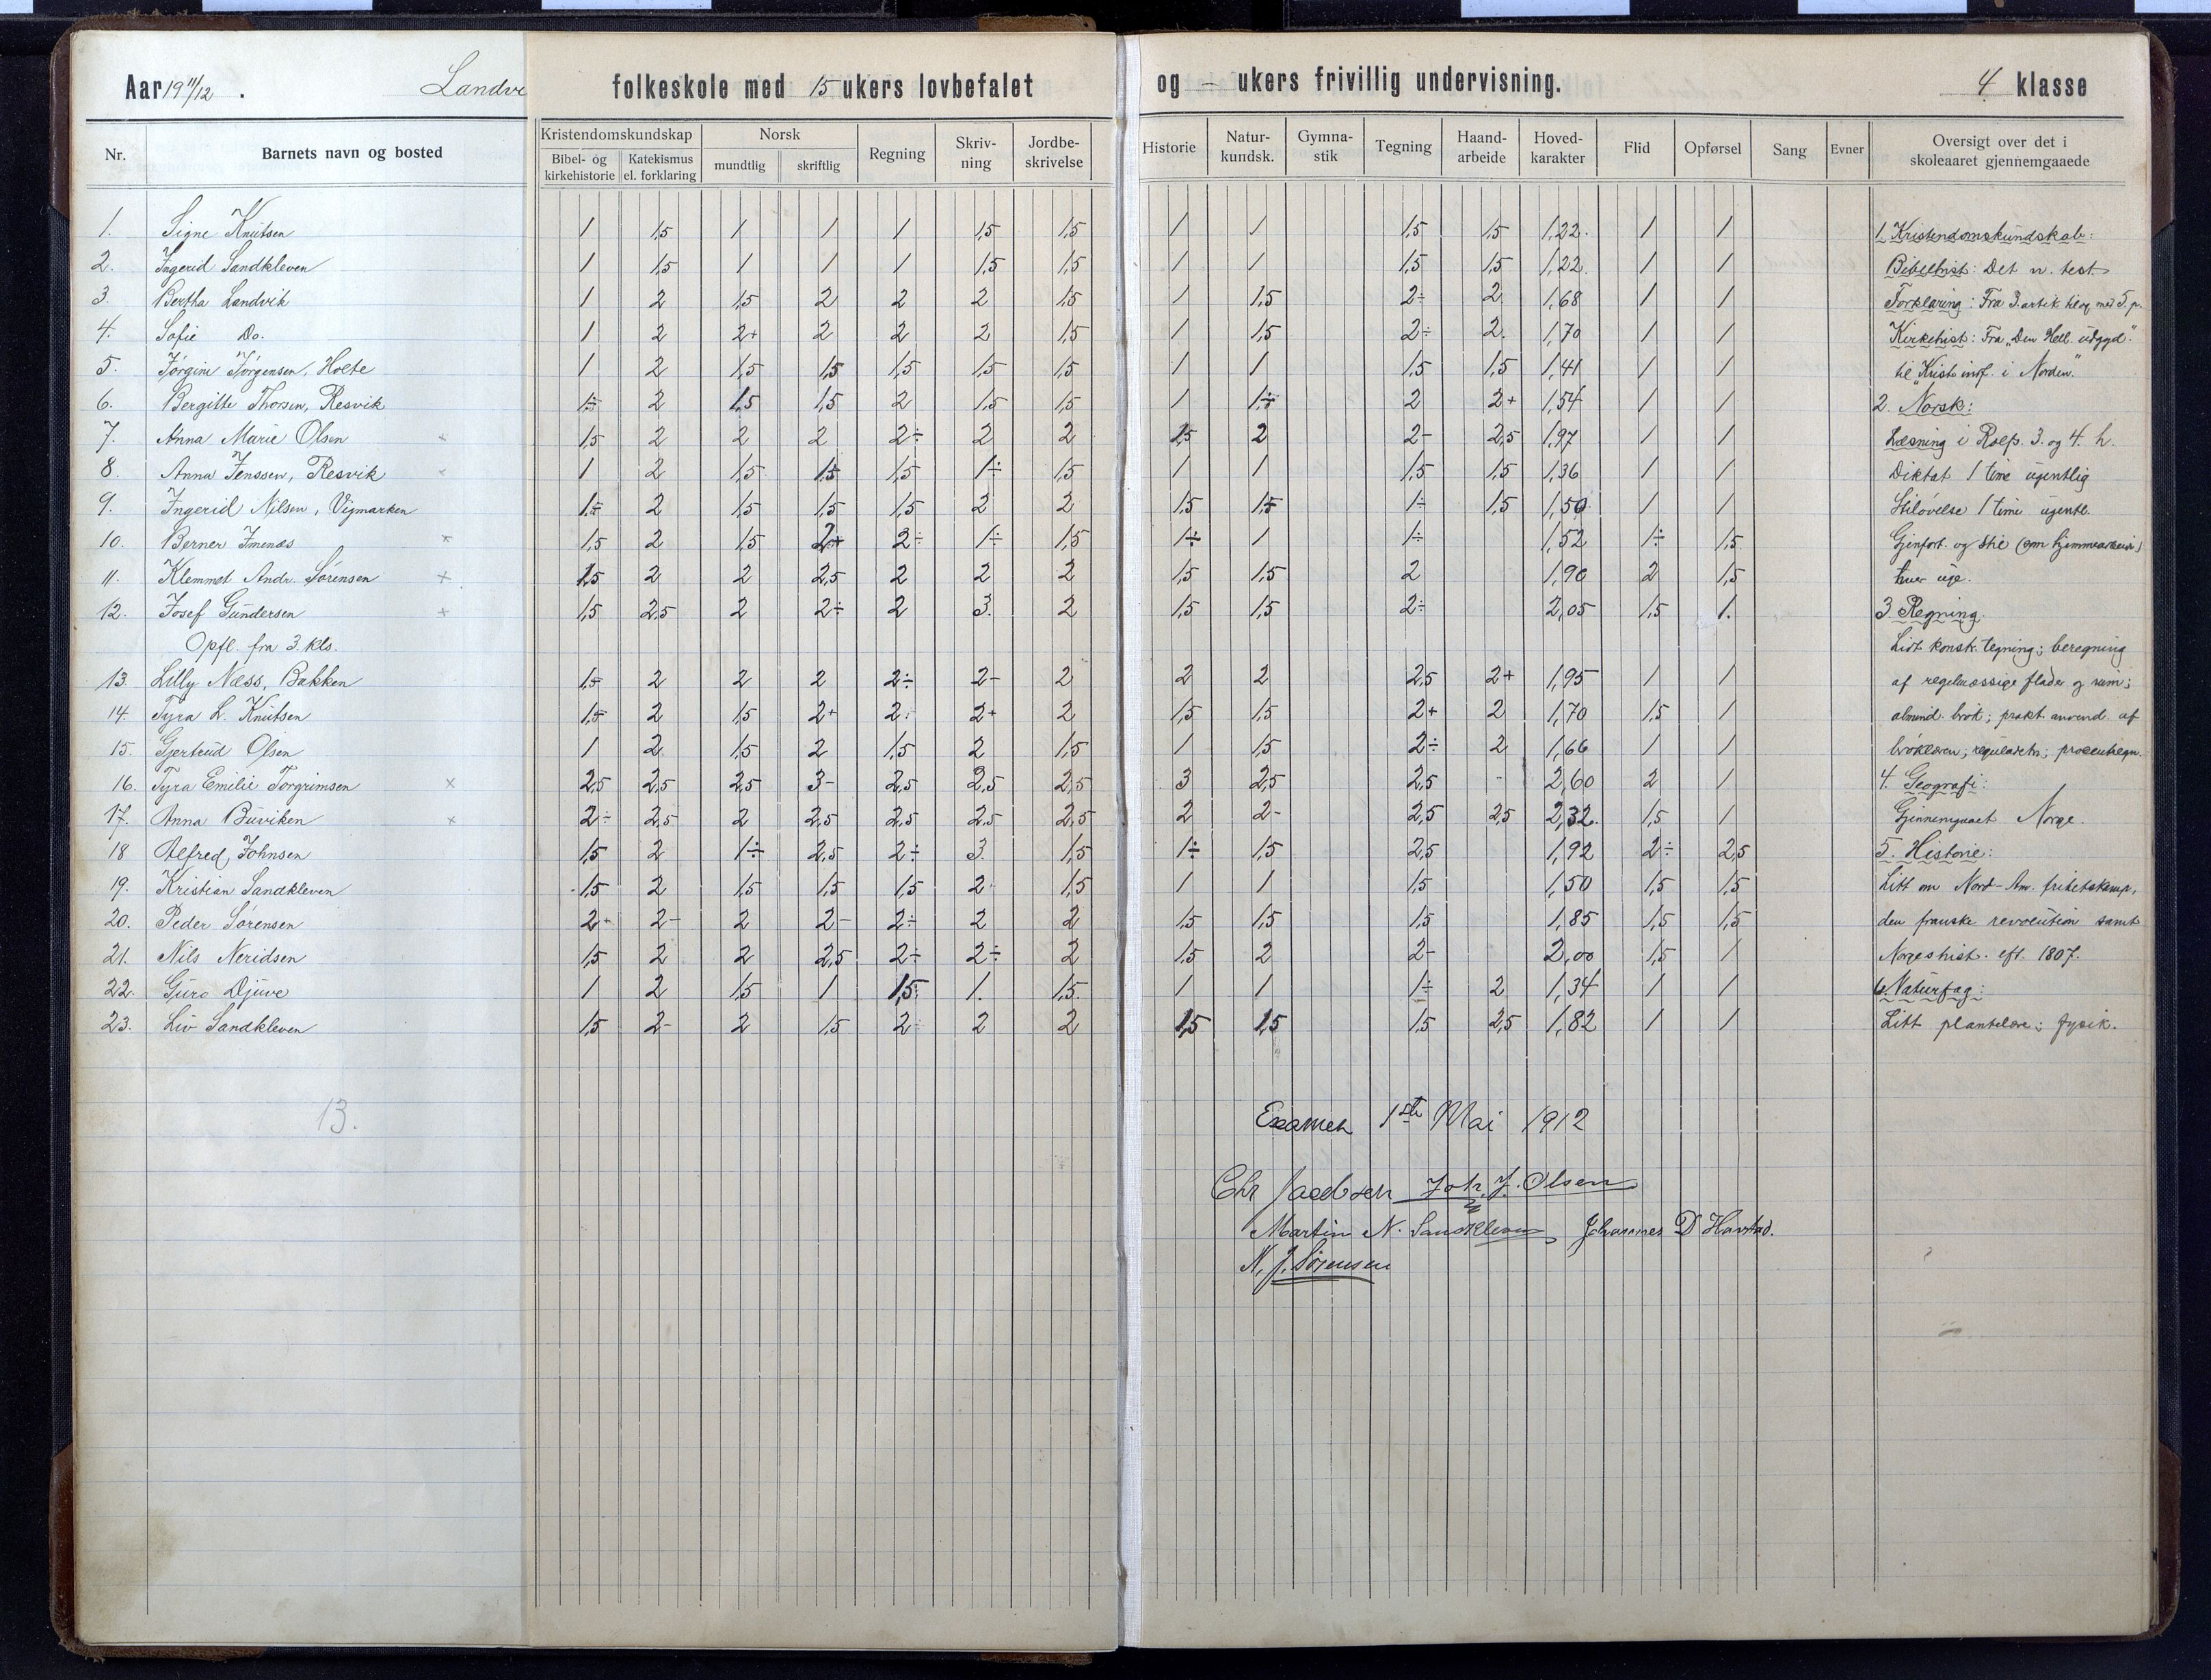 Aar 19 11/12 . Landv folkeskole med 15 ukers lovbefalet og - ukers frivillig undervisning. 4 klasse
Nr. Barnets navn og bosted Kristendomskundskap Norsk Regning Skriv-ning Jordbe-skrivelse Historie Natur-kundsk. Gymna-stik Tegning Haand-arbeide Hoved-karakter Flid Opførsel Sang Evner Oversigt over det i skoleaaret gjennemgaaede
Bibel- og kirkehistorie Katekismus el. forklaring mundtlig skriftlig
1. Signe Knutsen 1 1,5 1 1 1 1,5 1,5 1 1 1,5 1,5 1,22. 1 1 1. Kristendomskundskab:
2. Ingerid Sandkleven 1 1,5 1 1 1 1,5 1,5 1 1 1,5 1,5 1,22. 1 1 Bibelhist: Det n. test
3. Bertha Landvik 1 2 1,5 2 2 2 1,5 1 1,5 2÷ 2 1,68 1 1 Forklaring: Fra 3. artik til og med 5. p.
4. Sofie Do. 1 2 2+ 2 2 2 1,5 1 1,5 2÷ 2. 1,70 1 1 Kirkehist: Fra "Den Hell. udgyd."
5. Jørgine Jørgensen, Holte 1 2 1,5 1,5 1,5 1,5 1,5 1 1 1,5 1,5 1,41 1 1 til "Krist. innf. i Norden."
6. Bergitte Thorsen, Resvik 1÷ 2 1,5 1,5 2 1,5 1,5 1 1÷ 2 2+ 1,54 1 1 2. Norsk:
7. Anna Marie Olsen × 1,5 2 2 2 2÷ 2 2 1,5 2 2- 2,5 1,97 1 1 Læsning i Rolfs. 3. og 4. h.
8. Anna Jenssen, Resvik × 1 2 1,5 1,5 1,5 1÷ 1,5 1 1 1,5 1,5 1,36 1 1 Diktat 1 time ugentlig
9. Ingerid Nilsen, Vigmarken 1÷ 2 1,5 1,5 1,5 2 2 1,5 1,5 1÷ 1,5 1,50 1 1 Stiløvelse 1 time ugentl.
10. Berner Imenæs × 1,5 2 1,5 2+ 2÷ 1÷ 1,5 1÷ 1 1÷ 1,52 1÷ 1,5 Gjenfort. og Stil (som hjemmearbeide)
11. Klemmet Andr. Sørensen × 1,5 2 2 2,5 2 2 2 1,5 1,5 2 1,90 2 1,5 hver uge.
12. Josef Gundersen × 1,5 2,5 2 2÷ 2 3. 2 1,5 1,5 2÷ 2,05 1,5 1. 3. Regning.
Opfl. fra 3. kls. Lidt konsk. tegning; beregning
13. Lilly Næss, Bakken 1,5 2 2 2 2÷ 2- 2 2 2 2,5 2+ 1,95 1 1 af regelmæssige flader og rum;
14. Tyra L. Knutsen 1,5 2 1,5 2+ 2 2+ 2 1,5 1,5 2+ 2 1,70 1,5 1 almind. brøk; prakt. anvend. af
15. Gjertrud Olsen 1 2 1,5 2 1,5 2 1,5 1 1,5 2÷ 2 1,66 1 1 brøklæren; reguladetri; procentregn.
16. Tyra Emilie Torgrimsen × 2,5 2,5 2,5 3- 2,5 2,5 2,5 3 2,5 2,5 - 2,60 2 1 4. Geografi:
17. Anna Buviken × 2÷ 2,5 2 2,5 2,5 2,5 2,5 2 2- 2,5 2,5 2,32. 1,5 1 Gjennemgaaet Norge.
18 Alfred Johnsen 1,5 2 1÷ 2,5 2÷ 3. 1,5 1÷ 1,5 2,5 1,92 2÷ 2,5 5. Historie:
19. Kristian Sandkleven 1,5 2 1,5 1,5 1,5 2 1,5 1 1 1,5 1,50 1,5 1,5 Litt om Nord-Am. frihetskamp,
20. Peder Sørensen 2+ 2- 2 2- 2÷ 2 2 1,5 1,5 1,5 1,85 1,5 1,5 den franske revolution samt
21. Nils Neridsen 1,5 2 2 2,5 2÷ 2÷ 2 1,5 2 2- 2,00 1,5 1 Norgeshist. eft. 1807.
22. Guro Djuve 1 2 1,5 1 1,5 1. 1,5. 1 1 1÷ 2 1,34 1 1 6. Naturfag:
23. Liv Sandkleven 1,5 2- 2 1,5 2 2 2 1,5 1,5 1,5 2,5 1,82 1 1 Litt plantelære; fysik.
13.
Examen 1ste Mai 1912
Chr Jacobsen Joh. J. Olsen
Martin N. Sandkleven Johannes D Havstad.
N. J. Sørensen